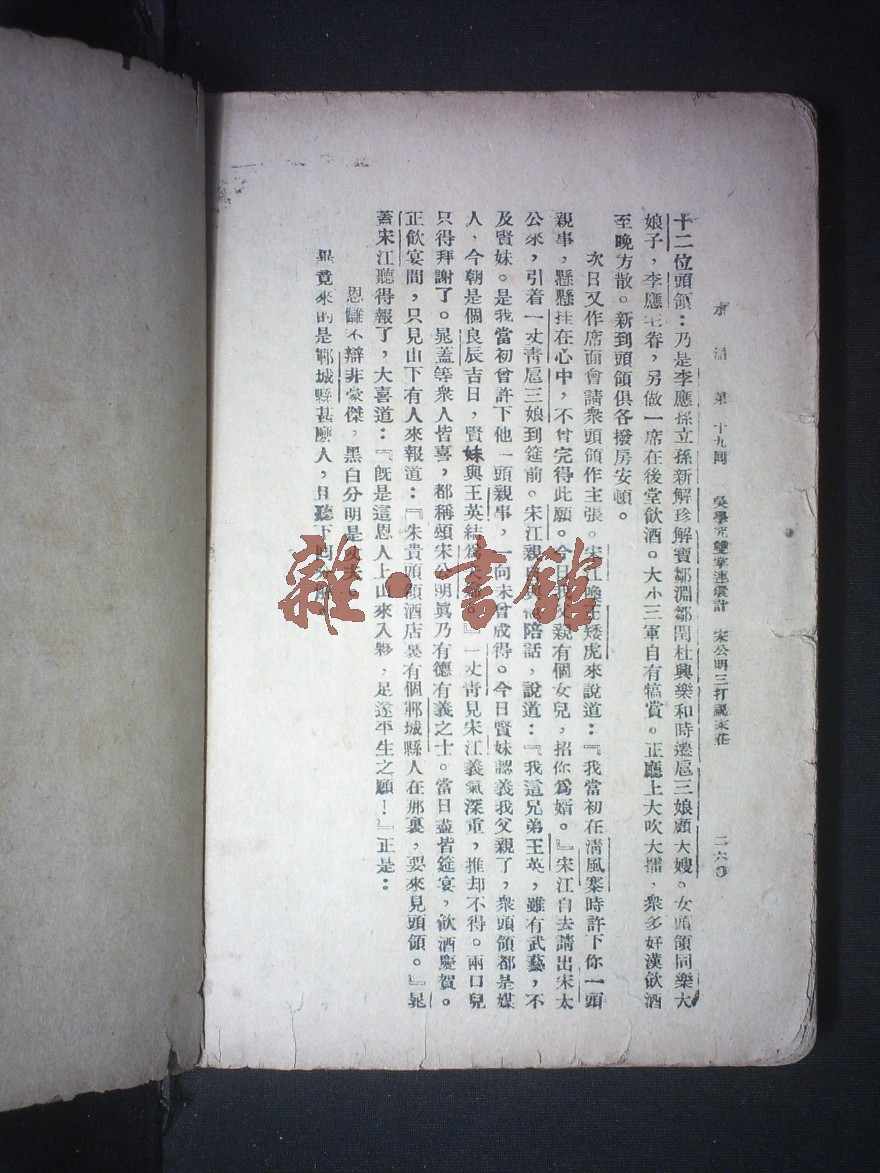 水滸 第四十九回 吳學究雙掌連環計 宋公明三打祝家莊 二六〇
十二位頭領：乃是李應孫立孫新解珍解寶鄒淵鄒閏杜興樂和時遷扈三娘顧大嫂。女頭領同樂大
娘子，李應宅眷，另做一席在後堂飲酒。大小三軍自有犒賞。正廳上大吹大擂，衆多好漢飲酒
至晚方散。新到頭領俱各撥房安頓。
次日又作席面會請衆頭領作主張。宋江喚王矮虎來說道：『我當初在清風寨時許下你一頭
親事，懸懸挂在心中，不曾完得此願。今日我父親有個女兒，招你爲婿。』宋江自去請出宋太
公來，引着一丈青扈三娘到筵前。宋江親自與他陪話，說道：『我這兄弟王英，雖有武藝，不
及賢妹。是我當初曾許下他一頭親事，一向未曾成得。今日賢妹認義我父親了，衆頭領都是媒
人，今朝是個良辰吉日，賢妹與王英結爲夫婦。』一丈青見宋江義氣深重，推却不得。兩口兒
只得拜謝了。晁蓋等衆人皆喜，都稱頌宋公明眞乃有德有義之士。當日盡皆筵宴，飲酒慶賀。
正飲宴間，只見山下有人來報道：『朱貴頭領酒店裏有個鄆城縣人在那裏，要來見頭領。』晁
蓋宋江聽得報了，大喜道：『旣是這恩人上山來入夥，足遂平生之願！』正是：
恩讎不辯非豪傑，黑白分明是丈夫。
畢竟來的是鄆城縣甚麼人，且聽下回分解。
雜·書館